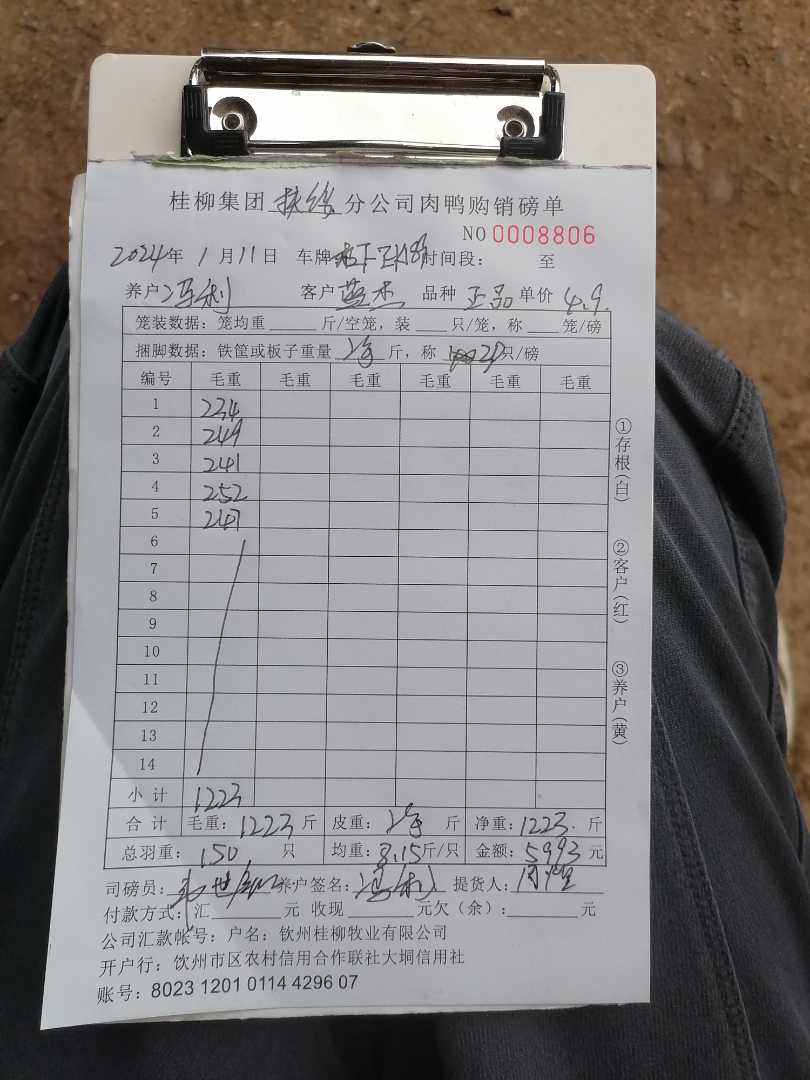 桂柳集团扶绥分公司肉鸭购销磅单
NO 0008806
2024年 1月11日 车牌 时间段: 至
养户 冯利 客户 蓝杰 品种 正品 单价 4.9.
笼装数据:笼均重 斤/空笼,装 只/笼,称 笼/磅
捆脚数据:铁筐或板子重量 斤,称 只/磅
编号 毛重 毛重 毛重 毛重 毛重 毛重
1 234
2 249
3 241
4 252
5 247
6
7
8
9
10
11
12
13
14
小计 1223
合计 毛重:1223斤 皮重: 斤 净重:1223.斤
总羽重:150只 均重:8.15斤/只 金额:5993元
司磅员: 养户签名:冯利 提货人:
付款方式:汇 元 收现 元欠(余): 元
公司汇款帐号:户名:钦州桂柳牧业有限公司
开户行:钦州市区农村信用合作联社大垌信用社
账号:8023 1201 0114 4296 07
①存根(白)
②客户(红)
③养户(黄)